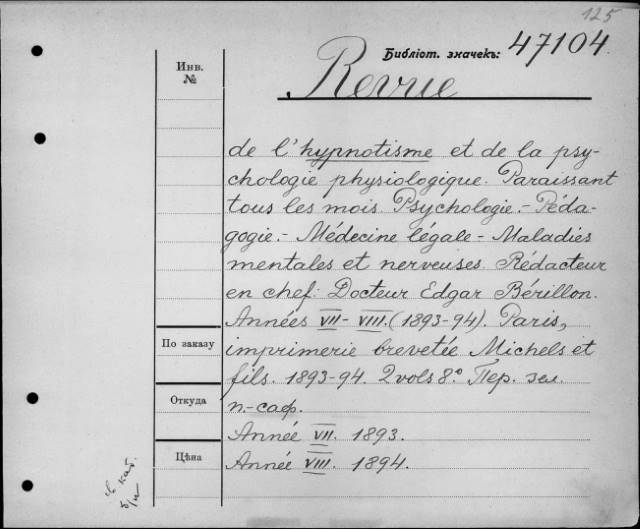 125
Библіот. значекъ: 47104.
Инв.
№
Revue
de l'hypnotisme et de la psy-
chologie physiologique. Paraissant
tous les mois. Psychologie.- Péda-
gogie.- Médecine légale - Maladies
mentales et nerveuses. Rédacteur
en chef: Docteur Edgar Bérillon.
Années VII - VIII. (1893-94). Paris,
По заказу
imprimerie brevetée Michels et
fils. 1893-94. 2 vols 8.° Пер. зел.
Откуда
п.-саф.
Année VII. 1893.
Цѣна
Année VIII. 1894.
кат.